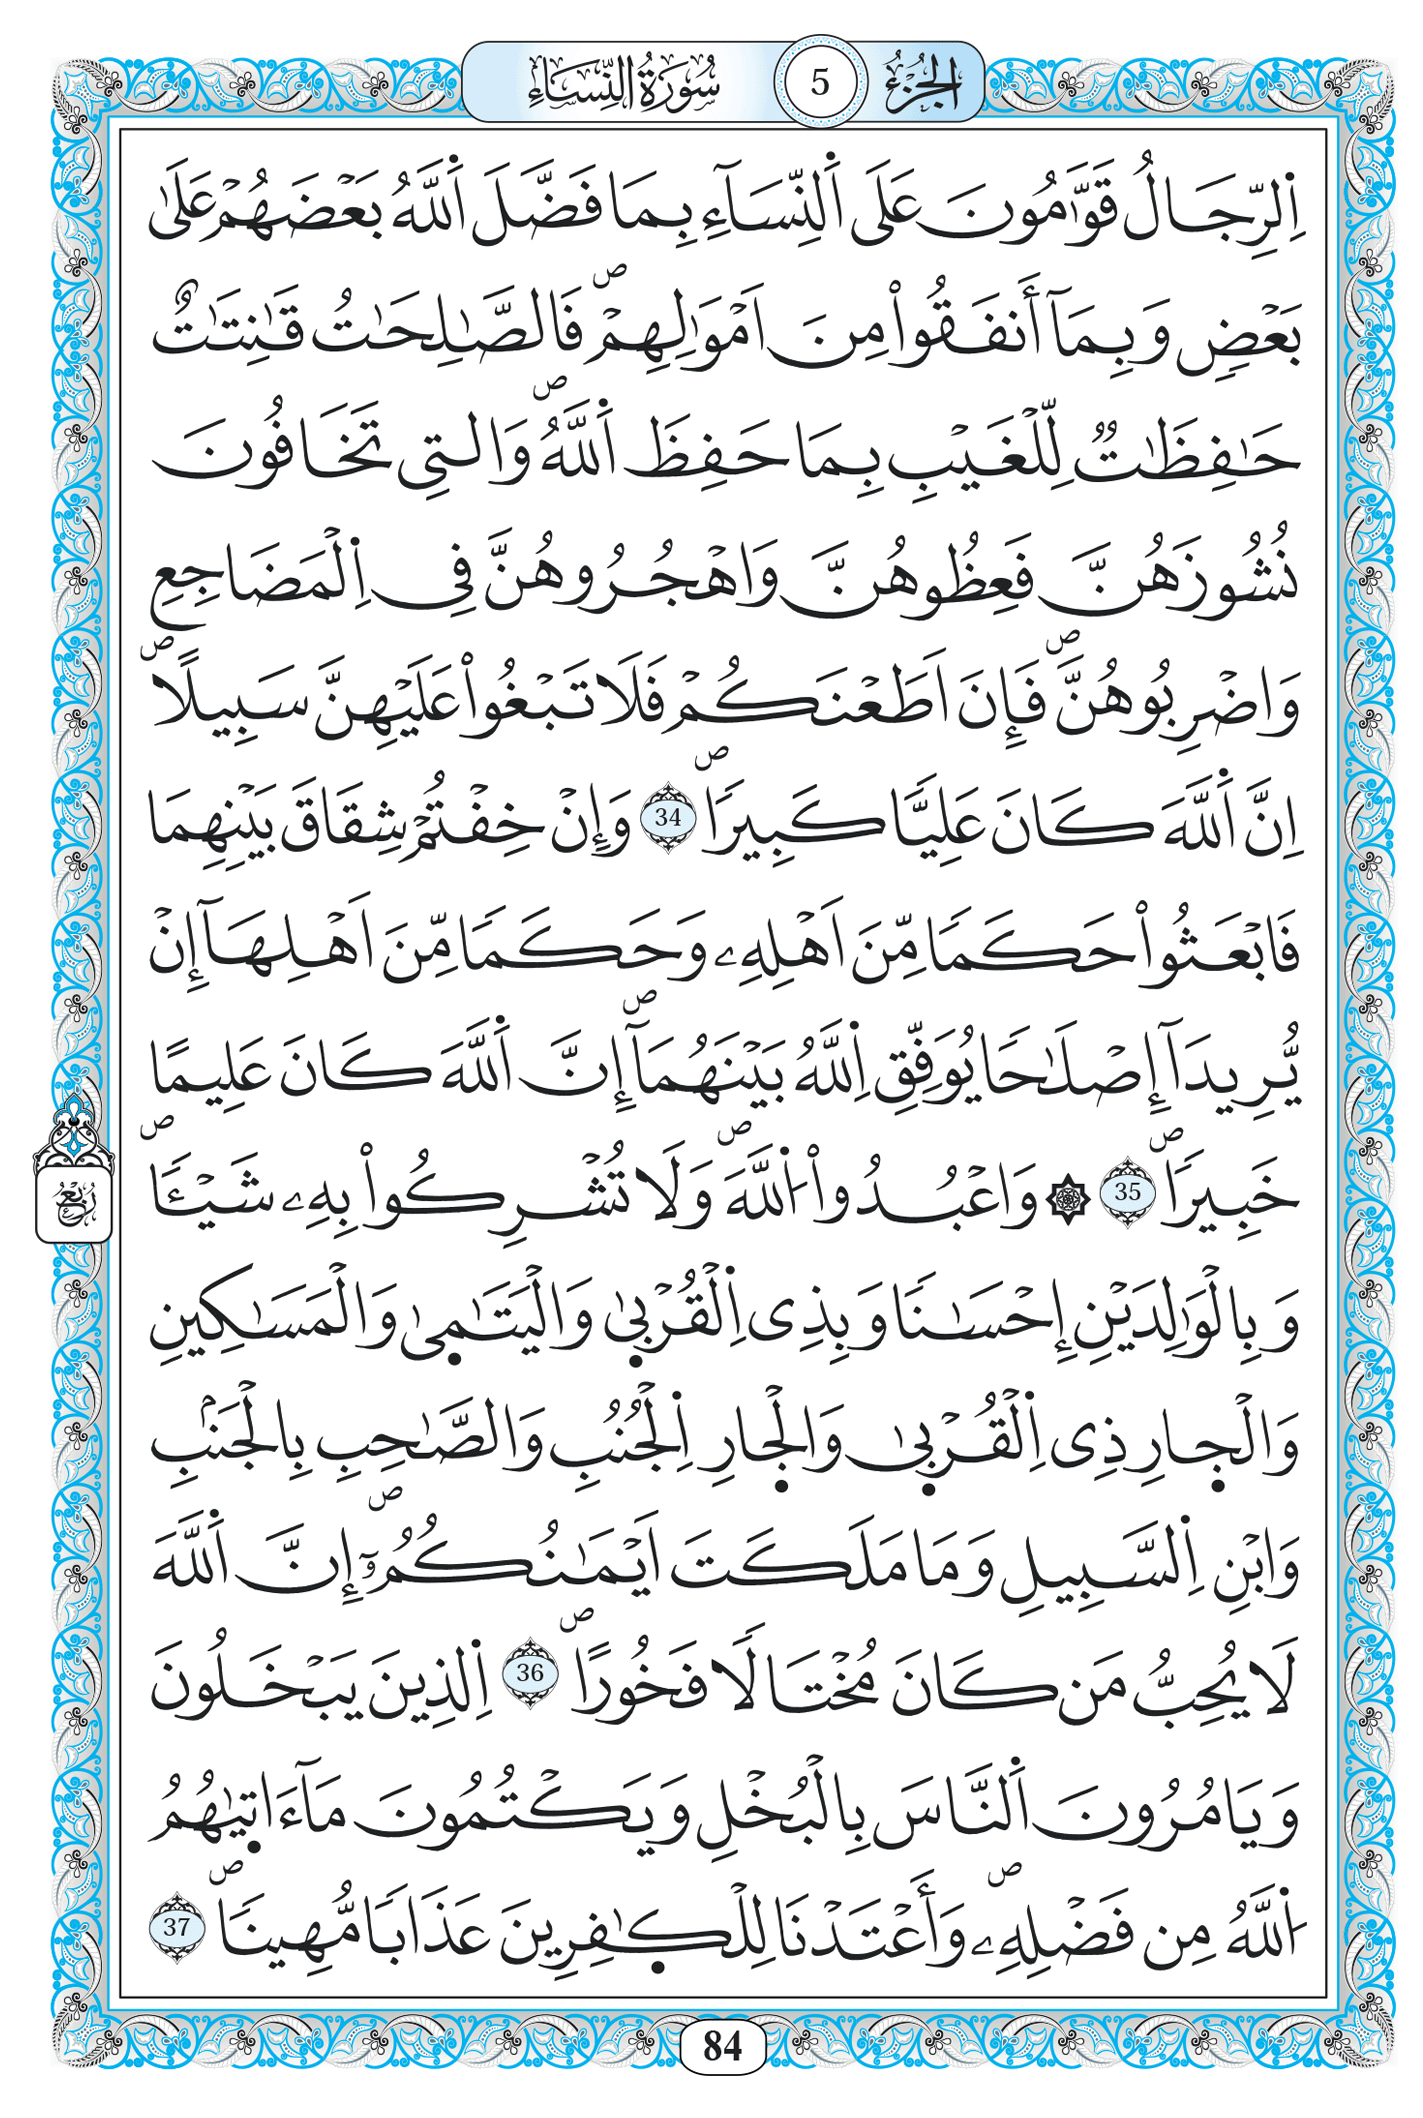 الجزء 5 سورة النساء
اِ۬لرِّجَالُ قَوَّٰمُونَ عَلَى اَ۬لنِّسَآءِ بِمَا فَضَّلَ اَ۬للَّهُ بَعْضَهُمْ عَلَىٰ
بَعْضٖ وَبِمَآ أَنفَقُواْ مِنَ اَمْوَٰلِهِمْۖ فَالصَّٰلِحَٰتُ قَٰنِتَٰتٌ
حَٰفِظَٰتٞ لِّلْغَيْبِ بِمَا حَفِظَ اَ۬للَّهُۖ وَالتِے تَخَافُونَ
نُشُوزَهُنَّ فَعِظُوهُنَّ وَاهْجُرُوهُنَّ فِے اِ۬لْمَضَاجِعِ
وَاضْرِبُوهُنَّۖ فَإِنَ اَطَعْنَكُمْ فَلَا تَبْغُواْ عَلَيْهِنَّ سَبِيلًاۖ
اِنَّ اَ۬للَّهَ كَانَ عَلِيّٗا كَبِيرٗاۖ 34 وَإِنْ خِفْتُمْ شِقَاقَ بَيْنِهِمَا
فَابْعَثُواْ حَكَمٗا مِّنَ اَهْلِهِۦ وَحَكَمٗا مِّنَ اَهْلِهَآ إِنْ
يُّرِيدَآ إِصْلَٰحٗا يُوَفِّقِ اِ۬للَّهُ بَيْنَهُمَآۖ إِنَّ اَ۬للَّهَ كَانَ عَلِيمًا
خَبِيرٗاۖ 35 ۞ وَاعْبُدُواْ اُ۬للَّهَۖ وَلَا تُشْرِكُواْ بِهِۦ شَيْـٔٗاۖ
وَبِالْوَٰلِدَيْنِ إِحْسَٰنٗا وَبِذِے اِ۬لْقُرْب۪ىٰ وَالْيَتَٰم۪ىٰ وَالْمَسَٰكِينِ
وَالْج۪ارِ ذِے اِ۬لْقُرْب۪ىٰ وَالْج۪ارِ اِ۬لْجُنُبِ وَالصَّٰحِبِ بِالْجَنۢبِ
وَابْنِ اِ۬لسَّبِيلِ وَمَا مَلَكَتَ اَيْمَٰنُكُمُۥٓۖ إِنَّ اَ۬للَّهَ
لَا يُحِبُّ مَن كَانَ مُخْتَالٗا فَخُورًاۖ 36 اِ۬لذِينَ يَبْخَلُونَ
وَيَامُرُونَ اَ۬لنَّاسَ بِالْبُخْلِ وَيَكْتُمُونَ مَآ ءَات۪يٰهُمُ
اُ۬للَّهُ مِن فَضْلِهِۦۖ وَأَعْتَدْنَا لِلْكٰ۪فِرِينَ عَذَابٗا مُّهِينٗاۖ 37
ربع
84